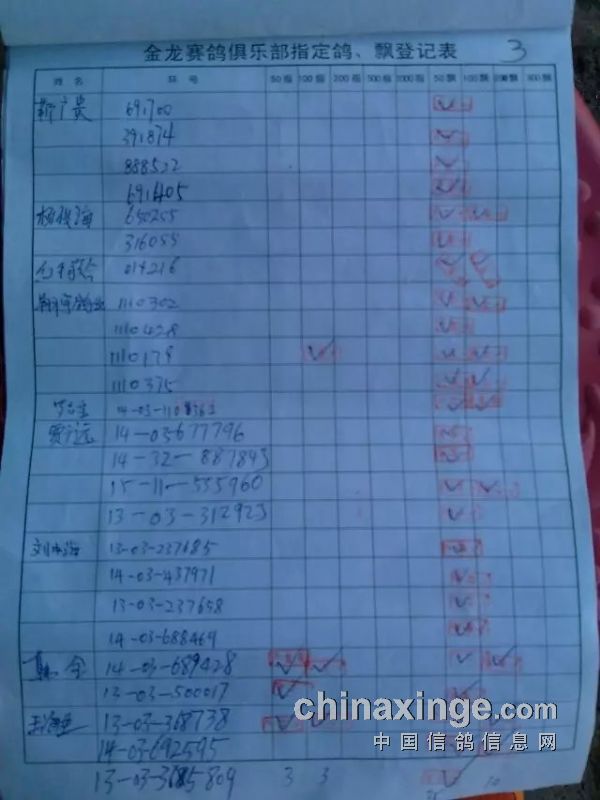 金龙赛鸽俱乐部指定鸽、飘登记表 3
姓名 环号 50指 100指 200指 500指 1000指 50飘 100飘 200飘 300飘
691700
391874
888522
691405
650255
316055
014216
1110302
1110428
1110179
1110375
14-03-110
14-03677796
14-32-887893
15-11-555960
13-03-312923
刘 海 13-03-237685
14-03-437971
13-03-237658
14-03-688469
全 14-03-689428
12-03-500017
王海 13-03-368738
14-03-692595
13-03- 809 3 3
chinaxinge.com
中国信鸽信息网